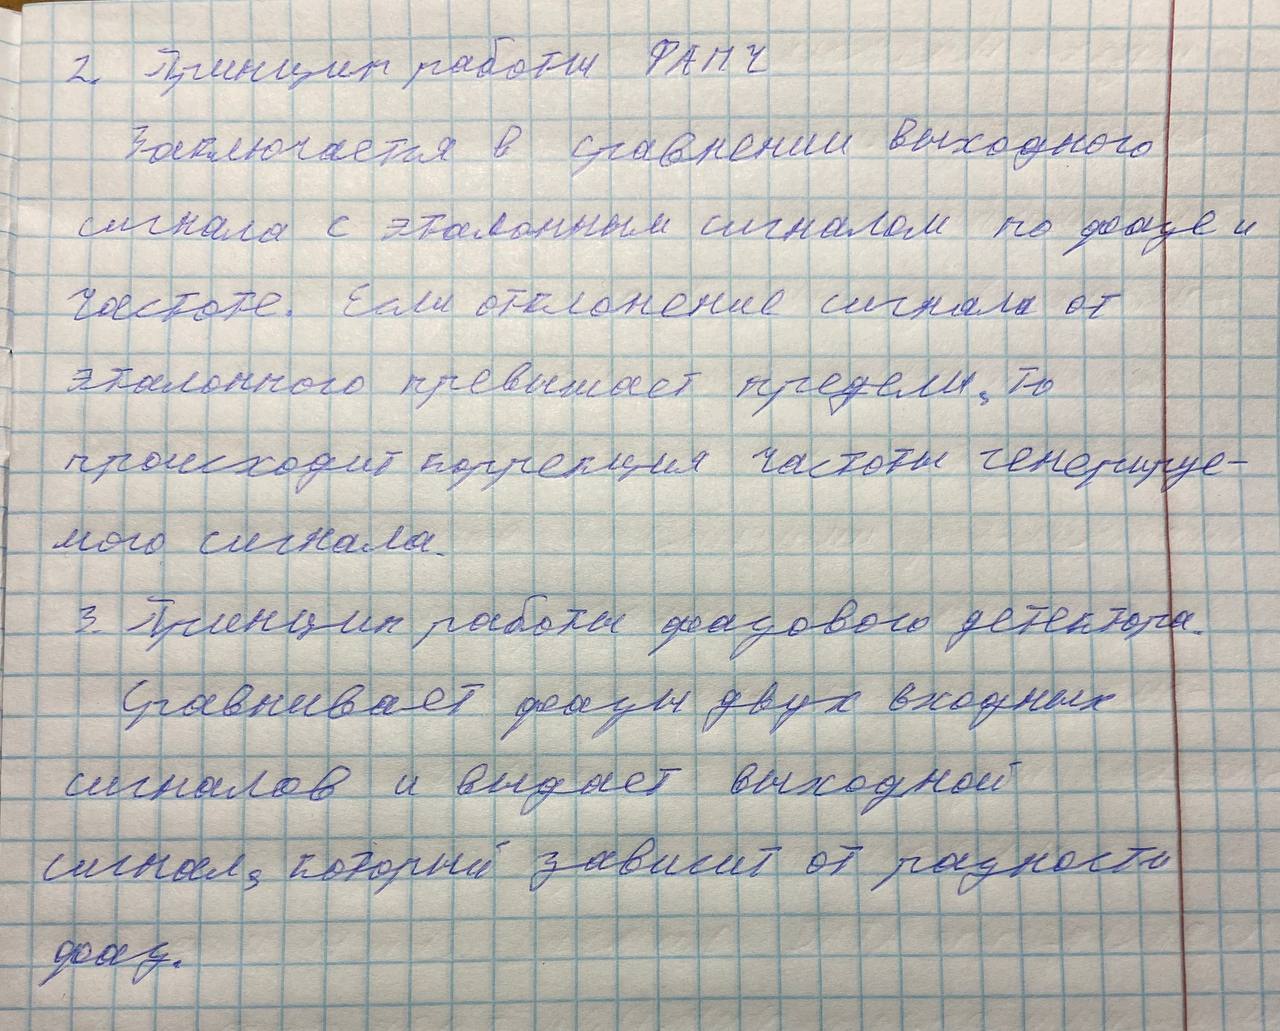 2. Принцип работы ФАПЧ
Заключается в сравнении выходного
сигнала с эталонным сигналом по фазе и
частоте. Если отклонение сигнала от
эталонного превышает пределы, то
происходит коррекция частоты генерируе-
мого сигнала.
3. Принцип работы фазового детектора.
Сравнивает фазы двух входных
сигналов и выдает выходной
сигнал, который зависит от разности
фаз.